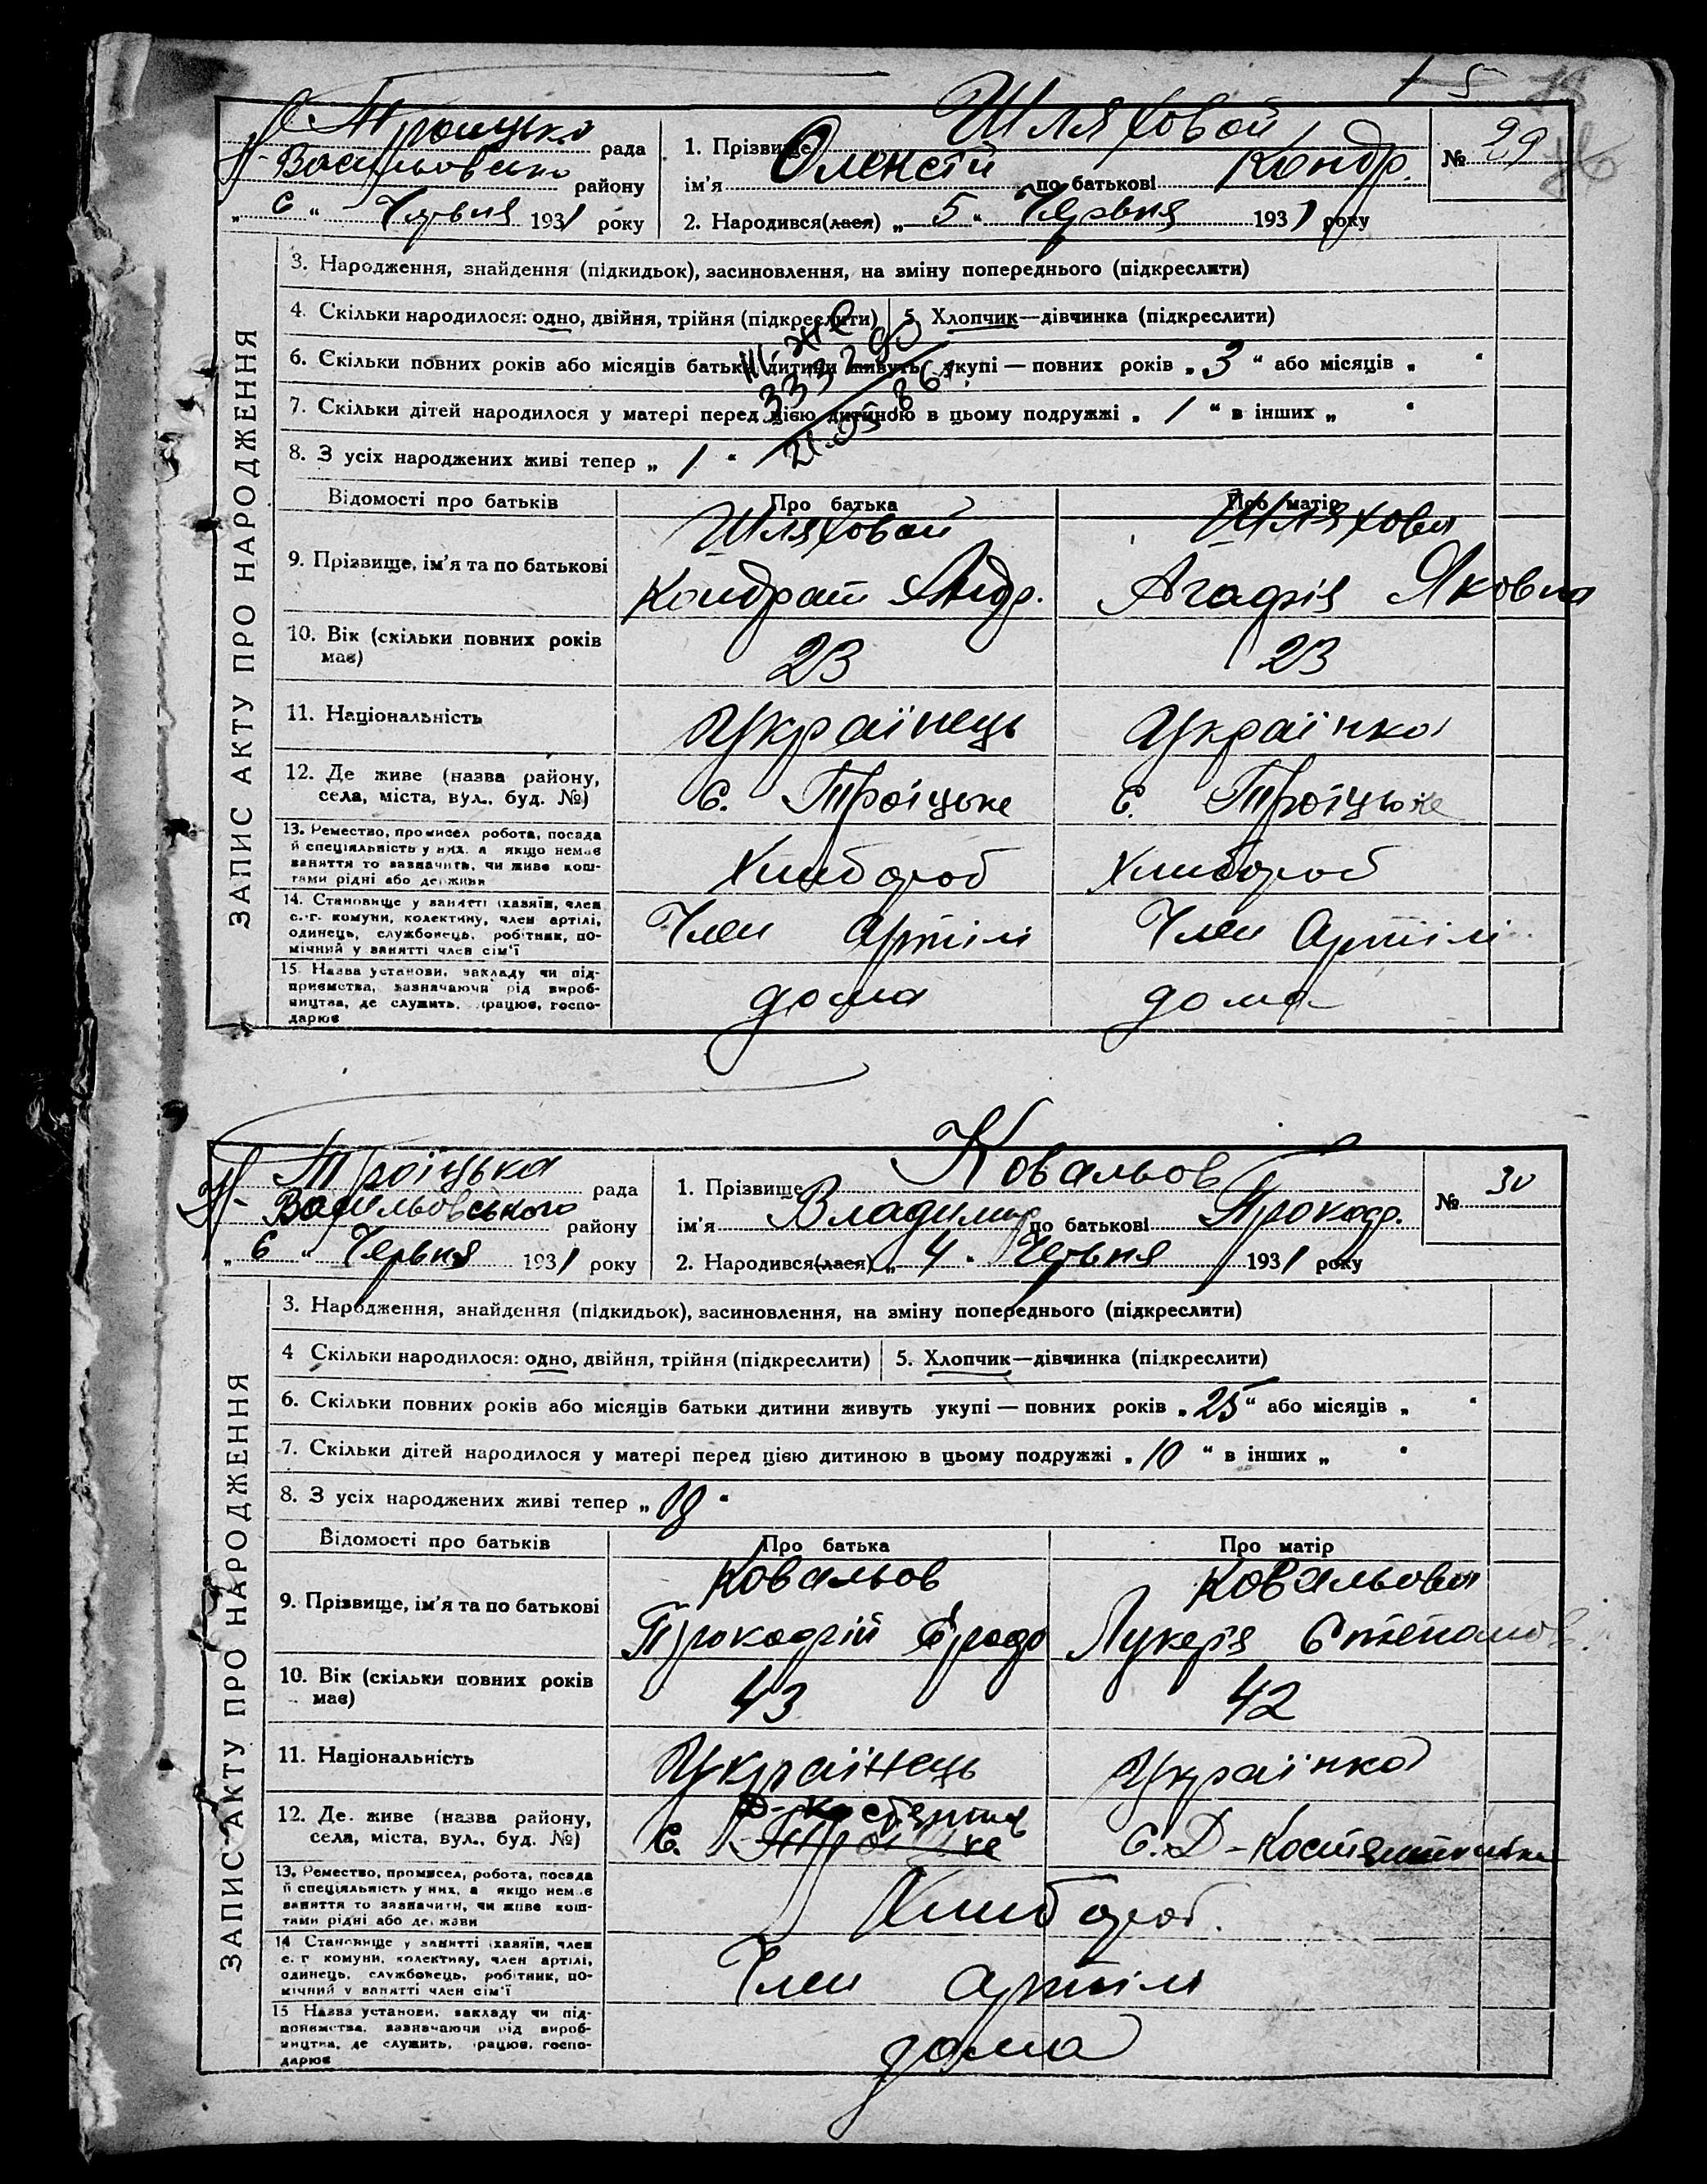 Троицька рада
Н-Васильовсько району
„ 6 “ Червня 1931 року
1. Прізвище Шляховой
ім'я Олексій по батькові Кондр.
2. Народився(лася) „ 5 “ Червня 1931 року
№ 29
ЗАПИС АКТУ ПРО НАРОДЖЕННЯ
3. Народження, знайдення (підкидьок), засиновлення, на зміну попереднього (підкреслити)
4. Скільки народилося: одно, двійня, трійня (підкреслити) 5. Хлопчик—дівчинка (підкреслити)
6. Скільки повних років або місяців батьки дитини живуть укупі — повних років „ 3 “ або місяців „ “
7. Скільки дітей народилося у матері перед цією дитиною в цьому подружжі „ 1 “ в інших „ “
8. З усіх народжених живі тепер „ 1 “
Відомості про батьків Про батька Про матір
9. Прізвище, ім'я та по батькові
Шляховой
Кондрат Андр.
Шляховая
Агафія Яковна
10. Вік (скільки повних років
має)
23 23
11. Національність Українець Українка
12. Де живе (назва району,
села, міста, вул., буд. №)
С. Троіцьке С. Троіцьке
13. Ремество, промисел робота, посада
й спеціяльність у них, а якщо немає
заняття то зазначить, чи живе кош-
тами рідні або держави
Хлибороб Хлибороб
14. Становище у занятті (хазяїн, член
с.-г. комуни, колективу, член артілі,
одинець, службовець, робітник, по-
мічний у занятті член сім'ї
Член Артілі Член Артілі
15. Назва установи, закладу чи під-
приємства, зазначаючи рід вироб-
ництва, де служить, працює, госпо-
дарює
дома дома
Троіцька рада
Н-Васильовського району
„ 6 “ Червня 1931 року
1. Прізвище Ковальов
ім'я Владимир по батькові Прокоф.
2. Народився(лася) „ 4 “ Червня 1931 року
№ 30
ЗАПИС АКТУ ПРО НАРОДЖЕННЯ
3. Народження, знайдення (підкидьок), засиновлення, на зміну попереднього (підкреслити)
4 Скільки народилося: одно, двійня, трійня (підкреслити) 5. Хлопчик—дівчинка (підкреслити)
6. Скільки повних років або місяців батьки дитини живуть укупі — повних років „ 25 “ або місяців „ “
7. Скільки дітей народилося у матері перед цією дитиною в цьому подружжі „ 10 “ в інших „ “
8. З усіх народжених живі тепер „ “
Відомості про батьків Про батька Про матір
9. Прізвище, ім'я та по батькові
Ковальов
Прокофій
Ковальовая
Лукеря Степанов.
10. Вік (скільки повних років
має)
43 42
11. Національність Українець Українка
12. Де живе (назва району,
села, міста, вул., буд. №)
С. Троіцьке
С. Д-Костянтинівка
13. Ремество, промисел, робота, посада
й спеціяльність у них, а якщо немає
заняття то зазначити, чи живе кош-
тами рідні або держави
Хлибороб.
14 Становище у занятті (хазяїн, член
с. г. комуни, колективу, член артілі,
одинець, службовець, робітник, по-
мічний у занятті член сім'ї
Член Артілі
15 Назва установи, закладу чи під-
приємства, зазначаючи рід вироб-
ництва, де служить, працює, госпо-
дарює
дома